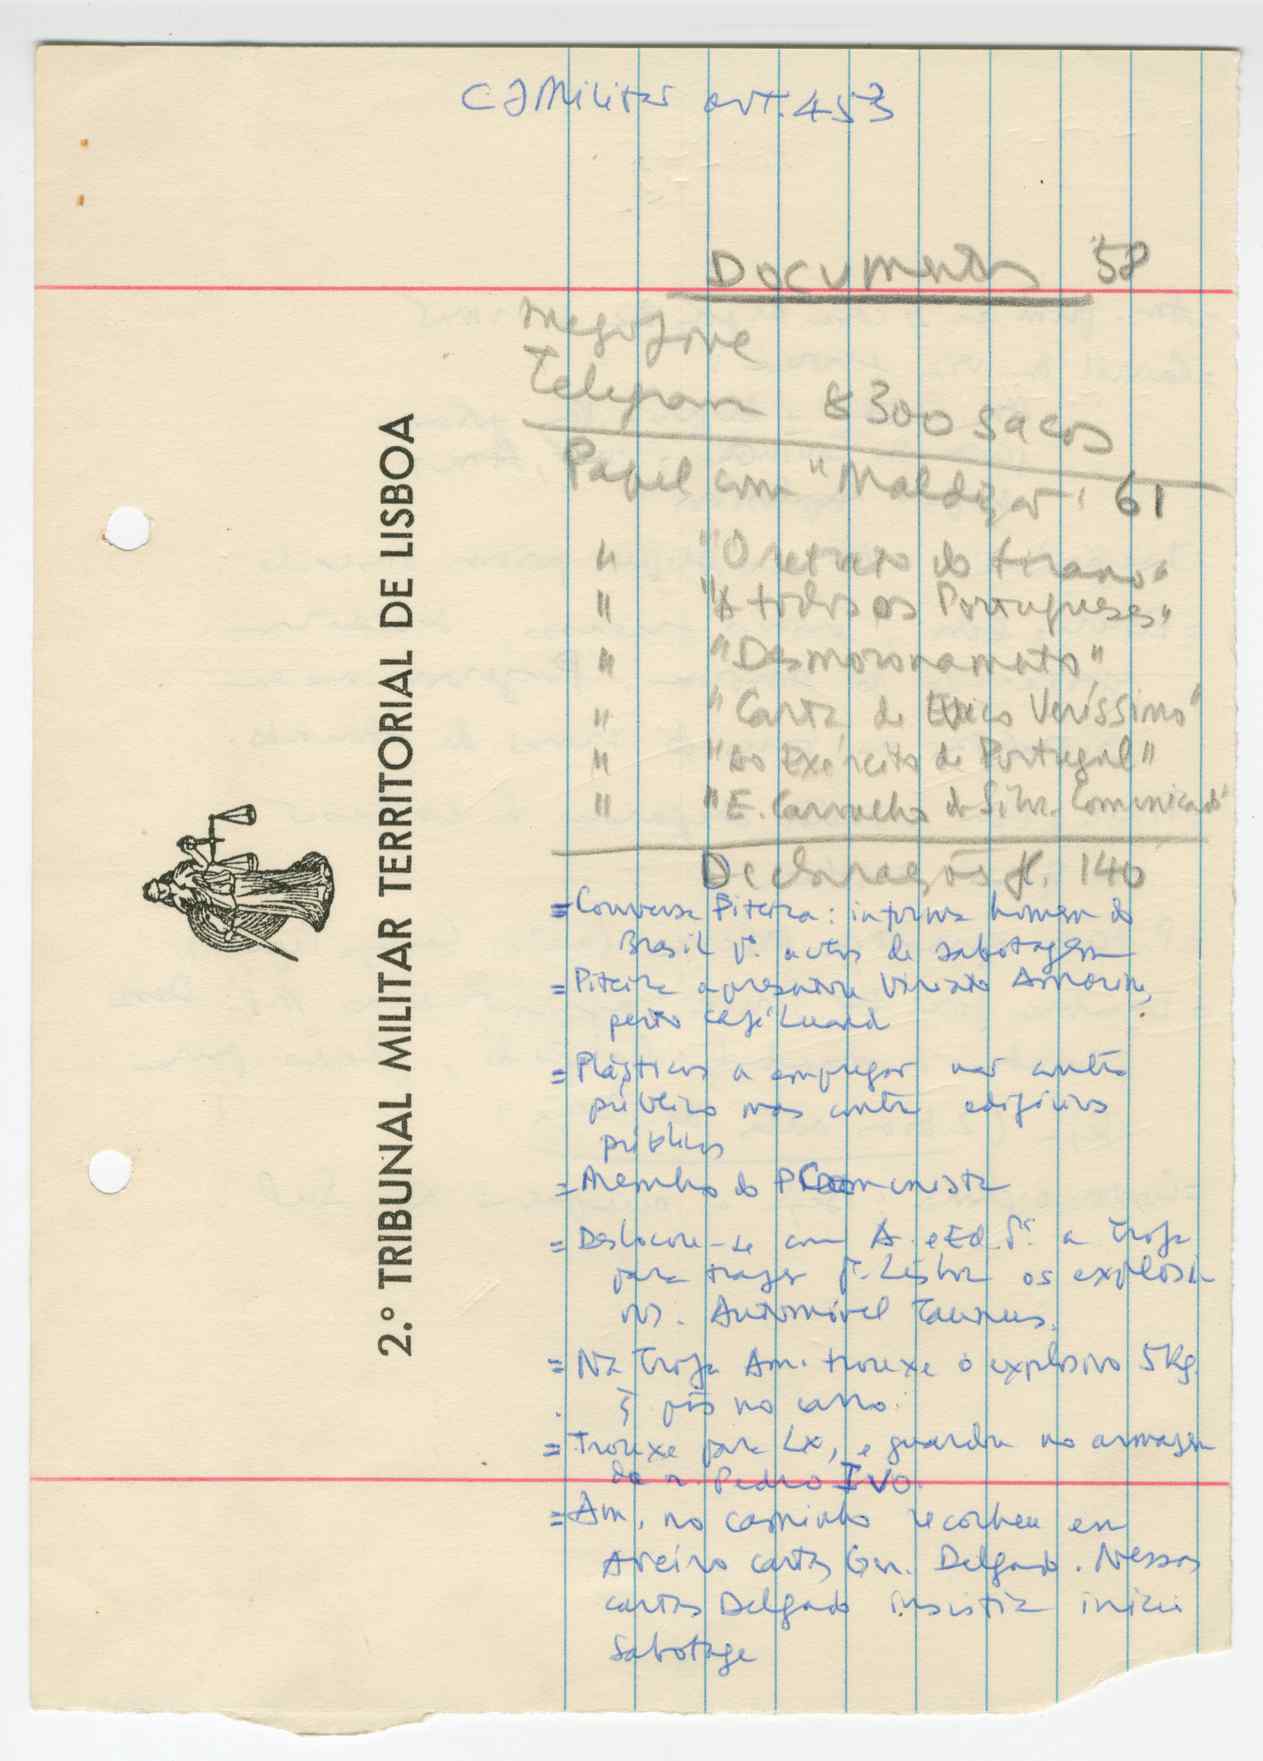 C J Militar art. 453
Documentos 58
Megafone
Telegrama 8300 sacos
Papel com "Maldizar" 61
" "O retrato do tirano"
" "A todos os Portugueses"
" "Desmoronamento"
" "Carta de Erico Veríssimo"
" "Ao Exército de Portugal"
" "E. Carvalho da Silva Comunicado"
Declarações fl. 140
= Conversa Piteira: informa homem do
Brasil pª. actos de sabotagem
= Piteira apresentou Viriato Amorim,
perto café Luanda
= Plásticos a empregar não contra
público mas contra edifícios
públicos
= Membro do P Comunista
= Deslocou-se com A. e Ed. a Troja
para trazer pª. Lisboa os explosi
vos. Automóvel Taunus.
= Na Troja Am. trouxe o explosivo 5 Kg.
pôs no carro.
= Trouxe para Lx, e guardou no armazem
da r. Pedro IVO.
= Am. no caminho recolheu em
Aveiro cartas Gen. Delgado. Nessas
cartas Delgado insistia inicie
Sabotage
2.º TRIBUNAL MILITAR TERRITORIAL DE LISBOA